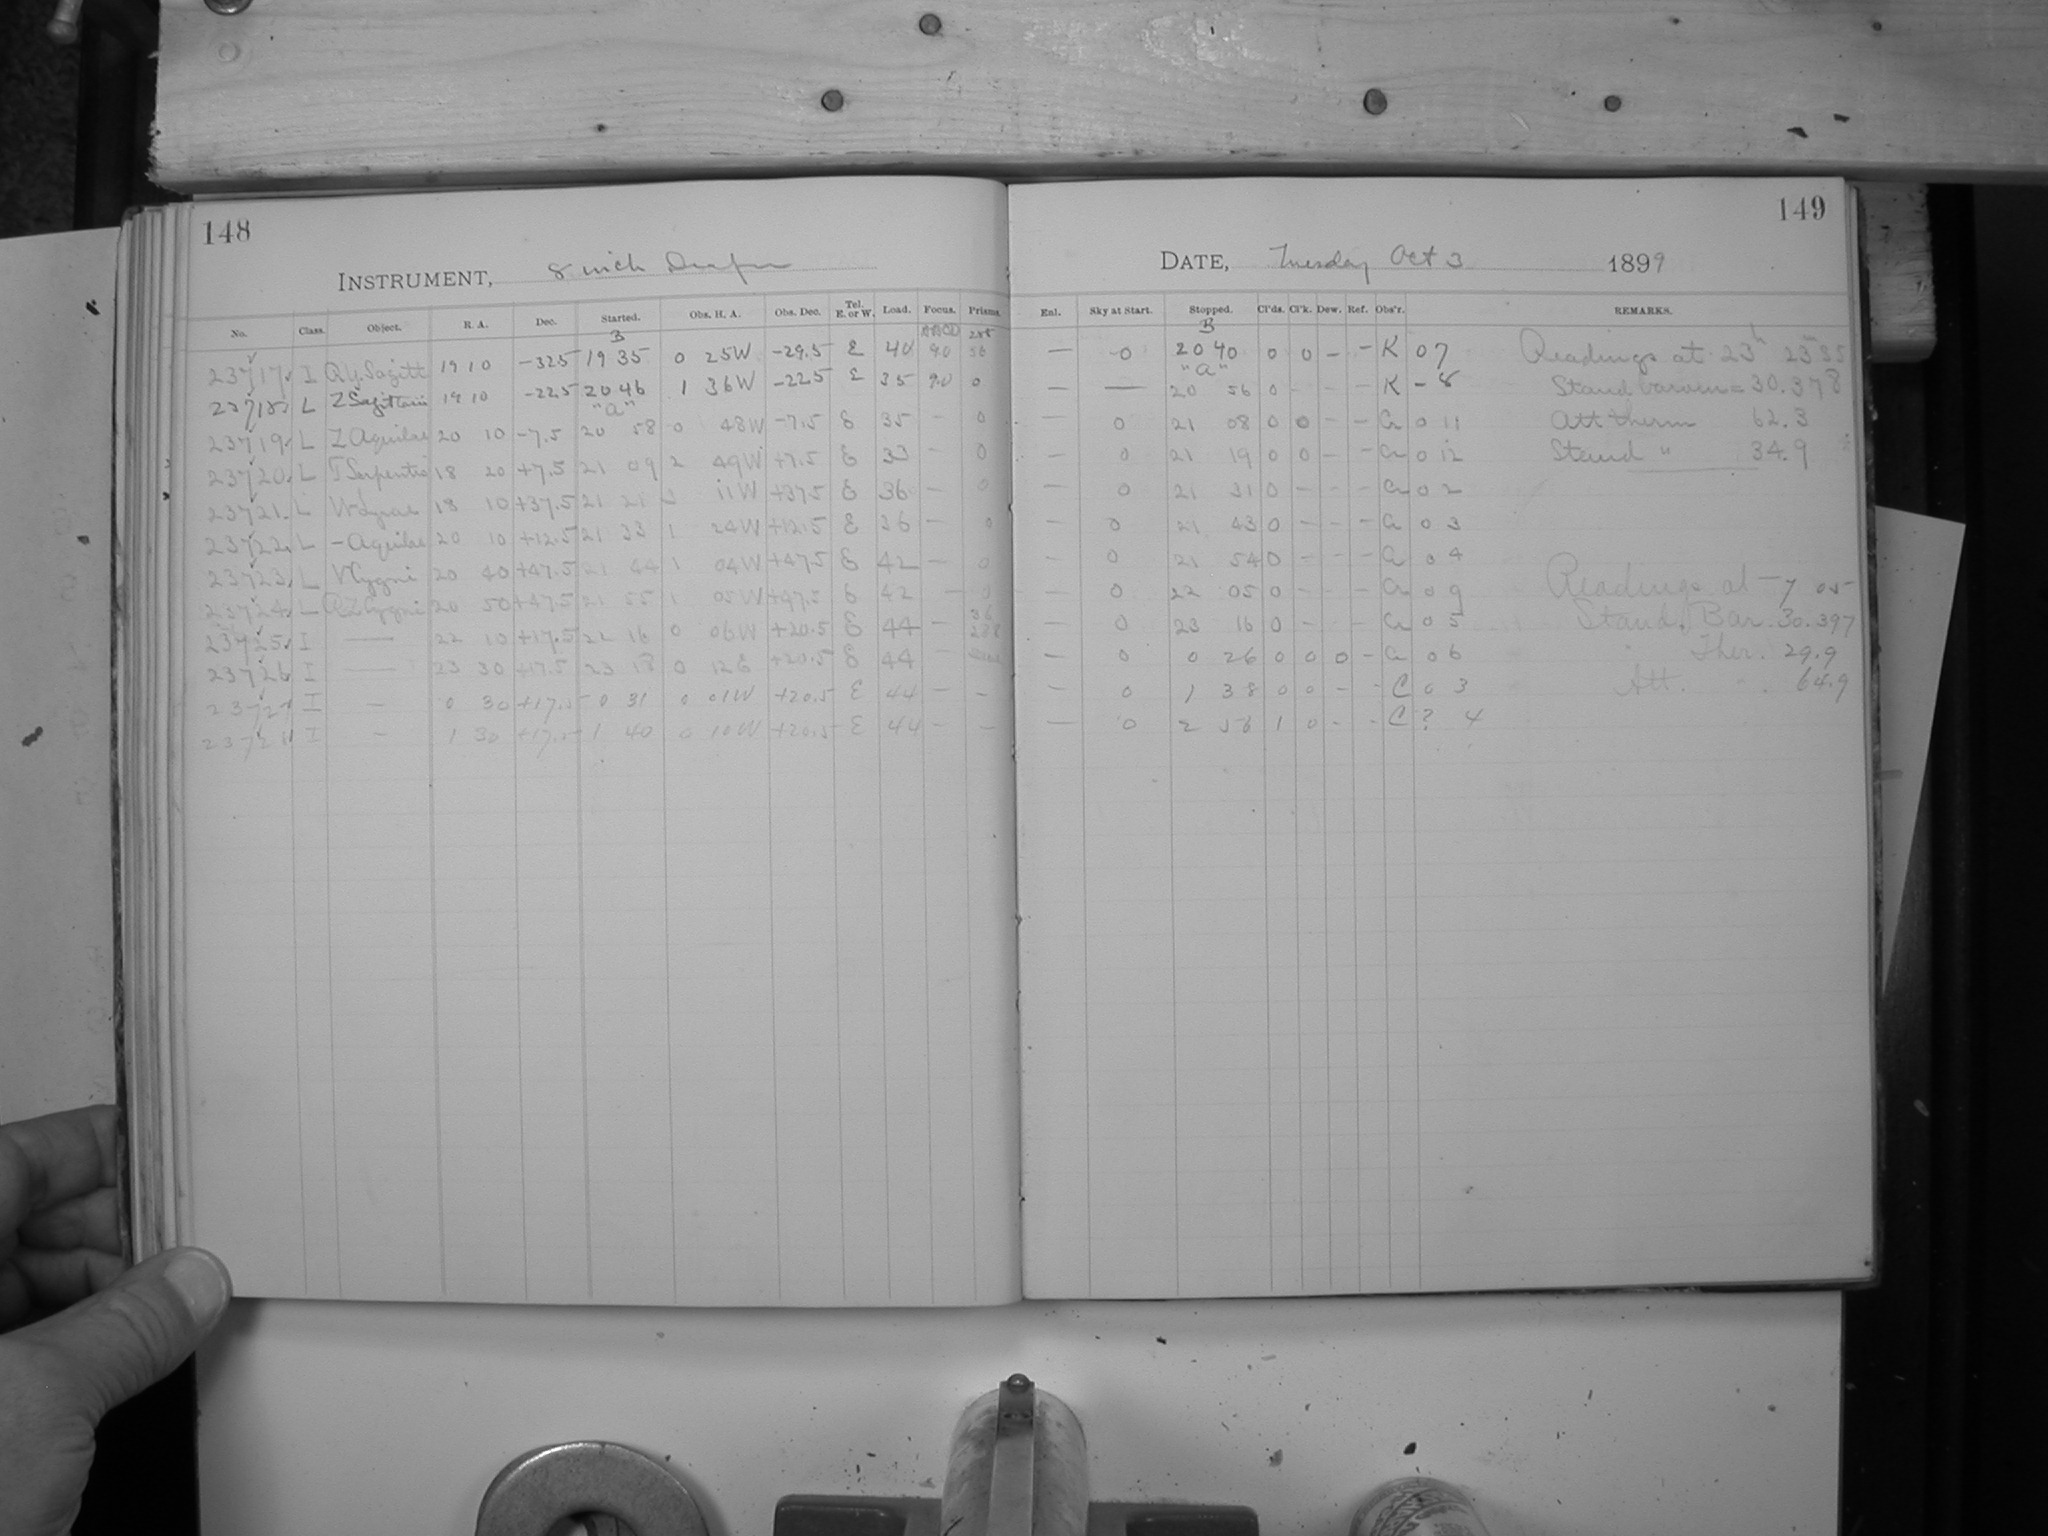 148
INSTRUMENT, 8 inch Draper
No. Class. Object. R. A. Dec. Started. Obs. H. A. Obs. Dec. Tel. E. or W. Load. Focus. Prisms.
B
23717 I RY Sagitt 19 10 -32.5 19 35 0 25W -29.5 E 40 9.0
23718 L Z Sagittarii 19 10 -22.5 20 46 1 36W -22.5 E 35 9.0 0
"a"
23719 L Z Aquilae 20 10 -7.5 20 58 0 48W -7.5 E 35 - 0
23720 L T Serpentis 18 20 +7.5 21 09 2 49W +7.5 E 33 - 0
23721 L W Lyrae 18 10 +37.5 21 21 3 11W +37.5 E 36 - 0
23722 L - Aquilae 20 10 +12.5 21 33 1 24W +12.5 E 36 - 0
23723 L V Cygni 20 40 +47.5 21 44 1 04W +47.5 E 42 - 0
23724 L RZ Cygni 20 50 +47.5 21 55 1 05W +47.5 E 42 - 0
23725 I — 22 10 +17.5 22 16 0 06W +20.5 E 44 - 36 238
23726 I — 23 30 +17.5 23 18 0 12E +20.5 E 44 -
23727 I — 0 30 +17.5 0 31 0 01W +20.5 E 44 - -
23728 I — 1 30 +17.5 1 40 0 10W +20.5 E 44 - -
149
DATE, Tuesday Oct 3 1899
Enl. Sky at Start. Stopped. Cl'ds. Cl'k. Dew. Ref. Obs'r. REMARKS.
B
— 0 20 40 0 0 - - K 07 Readings at 23h
"a"
— — 20 56 0 - - - K - 8 Stand barom = 30.378
— 0 21 08 0 0 - - a 0 11 Att therm 62.3
— 0 21 19 0 0 - - a 0 12 Stand " 34.9
— 0 21 31 0 - - - a 0 2
— 0 21 43 0 - - - a 0 3
— 0 21 54 0 - - - a 0 4
— 0 22 05 0 - - - a 0 9 Readings at - 7 05
— 0 23 16 0 - - - a 0 5 Stand. Bar. 30.397
— 0 0 26 0 0 0 - a 0 6 Ther. 29.9
— 0 1 38 0 0 - - C 0 3 Att. 64.9
— 0 2 56 1 0 - - C ? 4